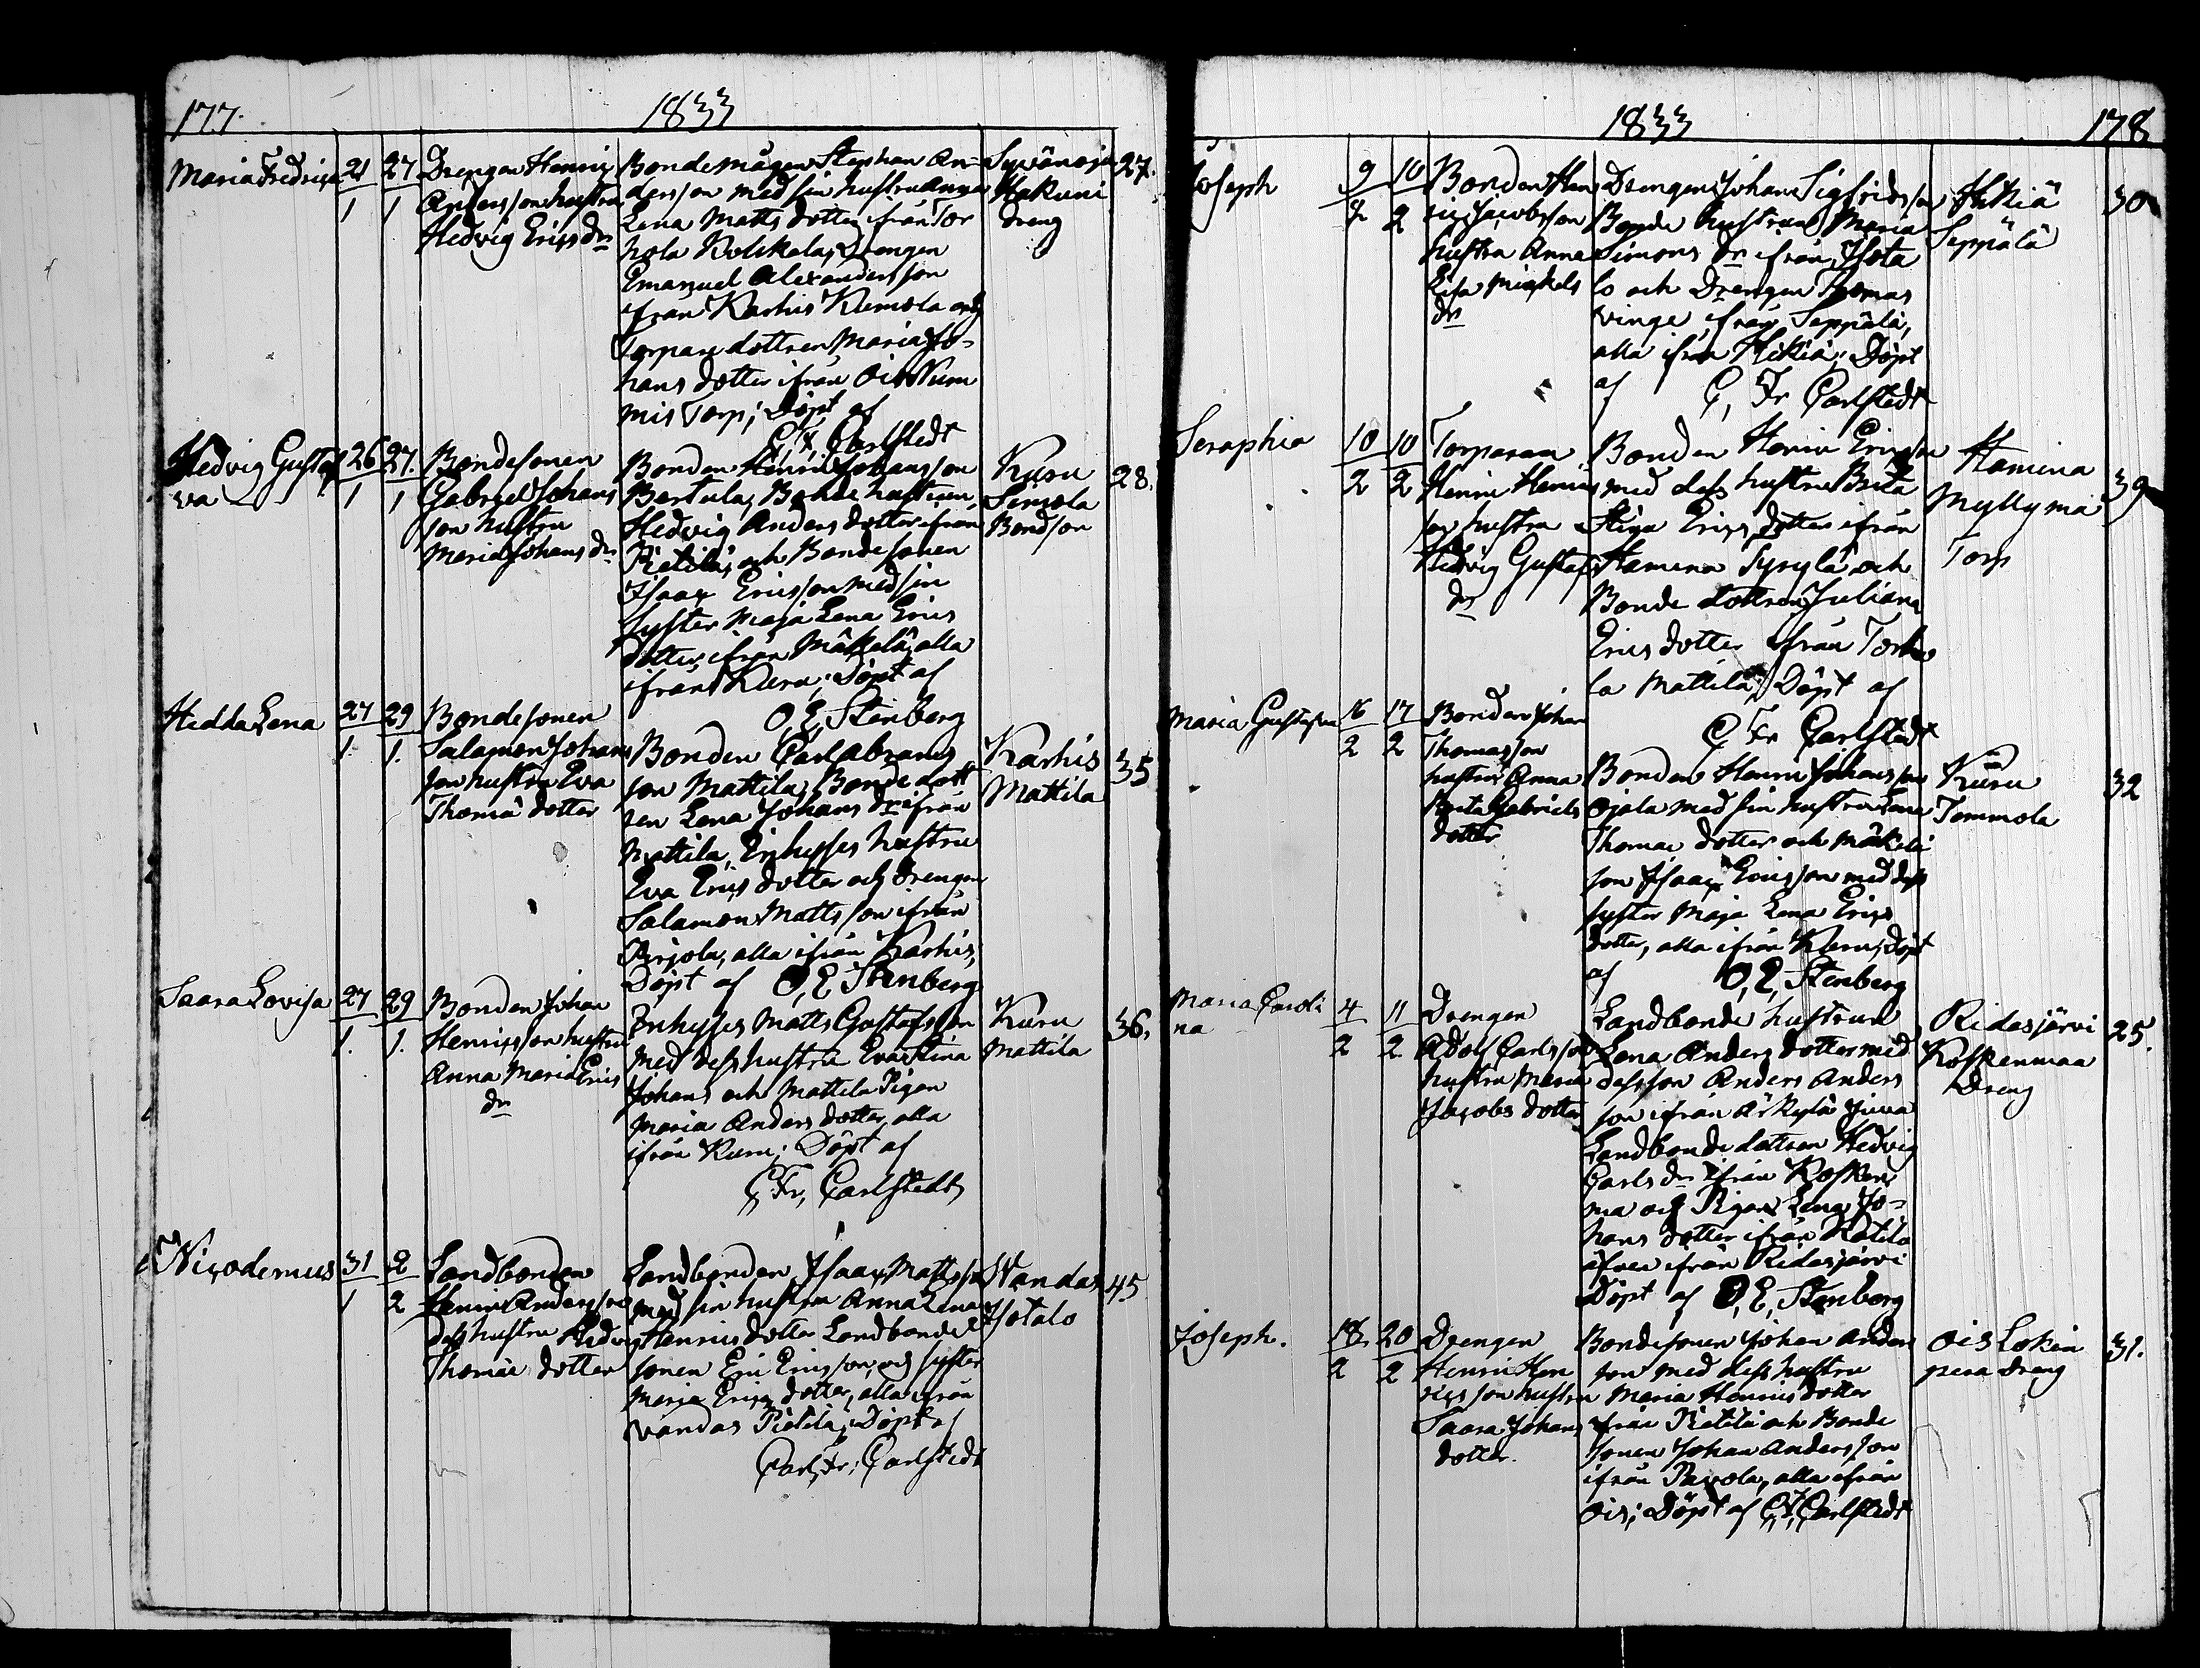 177.
1833
Maria Fredrica 21/1 27/1
Drengen Henric
Anderssons hustru
Hedvig Erics dr
Bondemågen Stephan An-
dersson med sin hustru Anna
Lena Matts dotter ifrån Tor
hola Kolskala, Drengen
Emanuel Alexandersson
ifrån Karhis Kumola och
Torpare dottren Maria Jo-
hans dotter ifrån Ois Num
mis Torp; Döpt af
C, F, Carlstedt
Syvänoja
Hakuni
Dreng
27.
Hedvig Gusta
va
26/1 27/1
Bondesonen
Gabriel Johans
son hustru
Maria Johans dr
Bonden Henric Johansson
Bertula, Bonde hustrun
Hedvig Anders dotter ifrån
Pietilä, och Bondesonen
Isaac Ericsson med sin
syster Maja Lena Erics
dotter, ifrån Mäkelä, alla
ifrån Kuru; Döpt af
O, E, Stenberg
Kuru
Simola
Bondson
28.
Hedda Lena 27/1 29/1
Bondesonen
Salamon Johans
son hustru Eva
Thomæ dotter
Bonden Carl Abrams
son Mattila, Bonde dott
ren Lena Johans dr ifrån
Mattila, Enhysses hustru
Eva Erics dotter och Drengen
Salamon Mattsson ifrån
Pirjola, alla ifrån Karhis;
Döpt af O, E Stenberg
Karhis
Mattila
35
Saara Lovisa 27/1 29/1
Bonden Johan
Henricsson hustru
Anna Maria Erics
dr
Enhysses Matts Gustafsson
med dess hustru Eva Stina
Johans och Mattila Pigan
Maria Anders dotter, alla
ifrån Kuru; Döpt af
C, Fr, Carlstedt
Kuru
Mattila
36.
Nicodemus 31/1 2/2
Landbonden
Henric Andersson
dess hustru Hedvig
Thomæ dotter
Landbonden Isaac Mattsson
med sin hustru Anna Lena
Henrics dotter Landbonde
sonen Eric Ericsson, och syster
Maria Erics dotter, alla ifrån
Vandas Pietilä; Döpt af
Carl, Fr, Carlstedt
Vandas
Isotalo
45
1833
178
Joseph 9/2 10/2
Bonden Hen
ric Jacobsson
hustru Anna
Lisa Mickels
dr
Drengen Johan Sigfridsson
Bonde hustrun Maria
Simons dr ifrån Isota
lo och Drengen Thomas
Vinge ifrån Seppälä,
alla ifrån Hikiä; Döpt
af C, Fr Carlstedt
Hikiä
Seppälä
30
Seraphia 10/2 10/2
Torparen
Henric Henrics
son hustru
Hedvig Gustafs
dr
Bonden Henric Ericsson
med dess hustru Brita
Stina Erics dotter ifrån
Hamina Syrylä och
Bonde dottren Juliana
Erics dotter ifrån Torho
la Mattila; Döpt af
C Fr Carlstedt
Hamina
Myllymä
Torp
39
Maria Gustava 16/2 17/2
Bonden Johan
Thomasson
hustru Anna
Brita Gabriels
dotter
Bonden Henric Johansson
Ojala med sin hustru Lena
Thomæ dotter och Mäkelä
son Isaac Ericsson med dess
syster Maja Lena Erics
dotter, alla ifrån Kuru; Döpt
af O, E, Stenberg
Kuru
Tommola
32
Maria Caroli
na
4/2 11/2
Drengen
Adolf Carlsson
hustru Maria
Jacobs dotter
Landbonde hustrun
Lena Anders dotter med
dess son Anders Anders
son ifrån Arkylä Juva
Landbonde dottren Hedvig
Carls dr ifrån Kosken
ma och Pigan Lena Jo-
hans dotter ifrån Kotila
äfven ifrån Ridasjärvi
Döpt af O, E, Stenberg
Ridasjärvi
Koskenmaa
Dreng
25.
Joseph. 18/2 20/2
Drengen
Henric Hen
ricsson hustru
Saara Johans
dotter.
Bondesonen Johan Anders
son med dess hustru
Maria Henrics dotter
från Pietilä och Bonde
sonen Johan Andersson
ifrån Pavola, alla ifrån
Ois; Döpt af C, F, Carlstedt
Ois Lokin
pera Dreng
31.